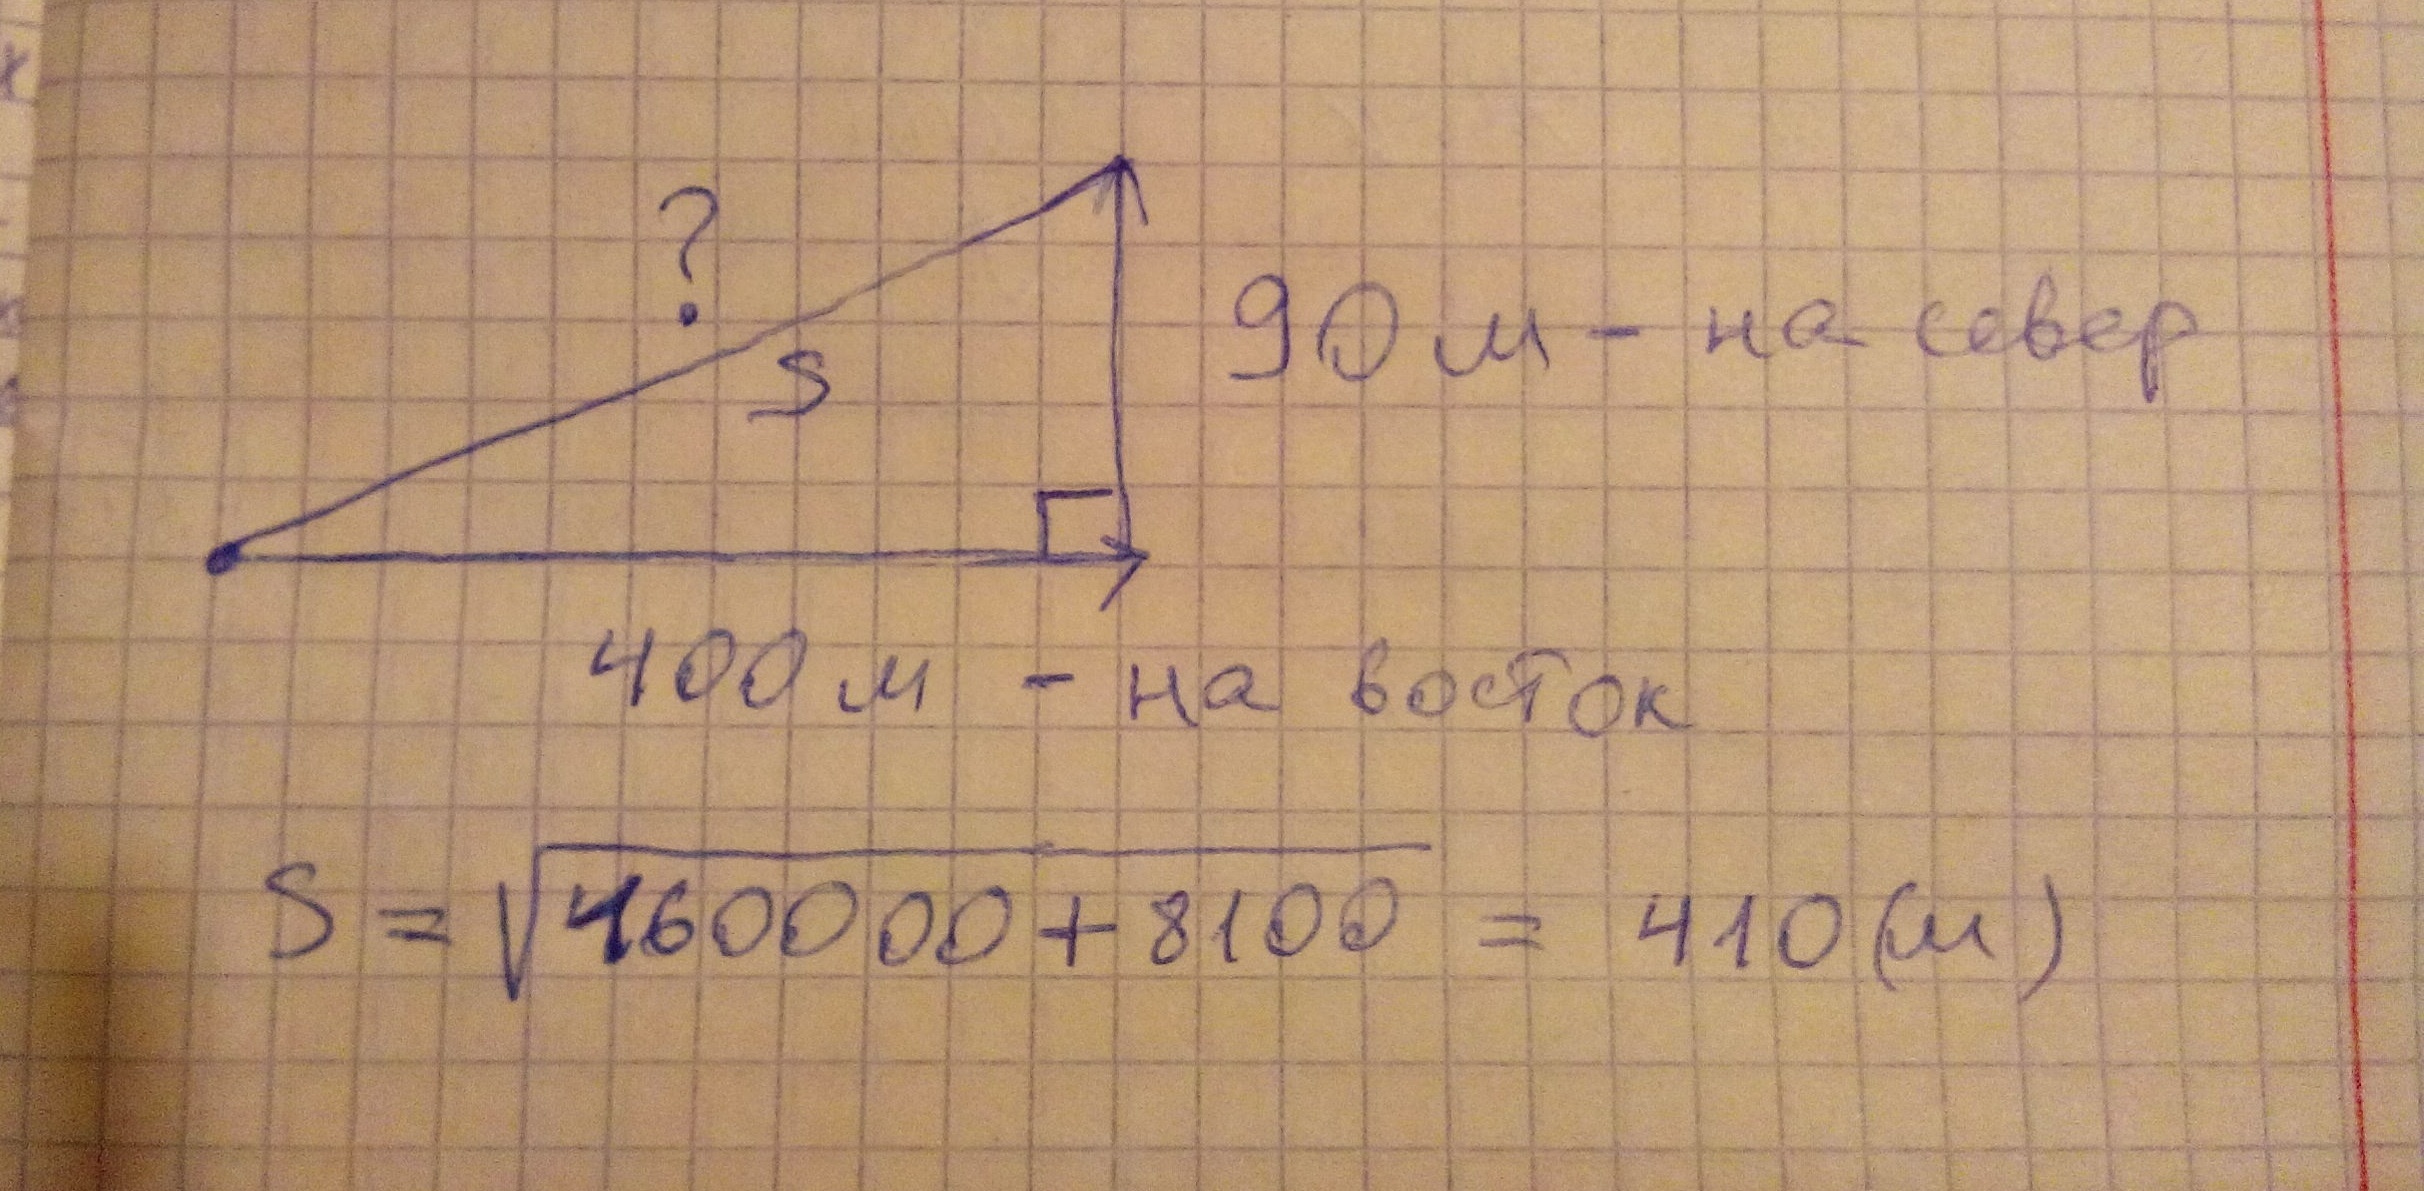 ?
S
90 м - на север
400 м - на восток
S = √460000 + 8100 = 410 (м)